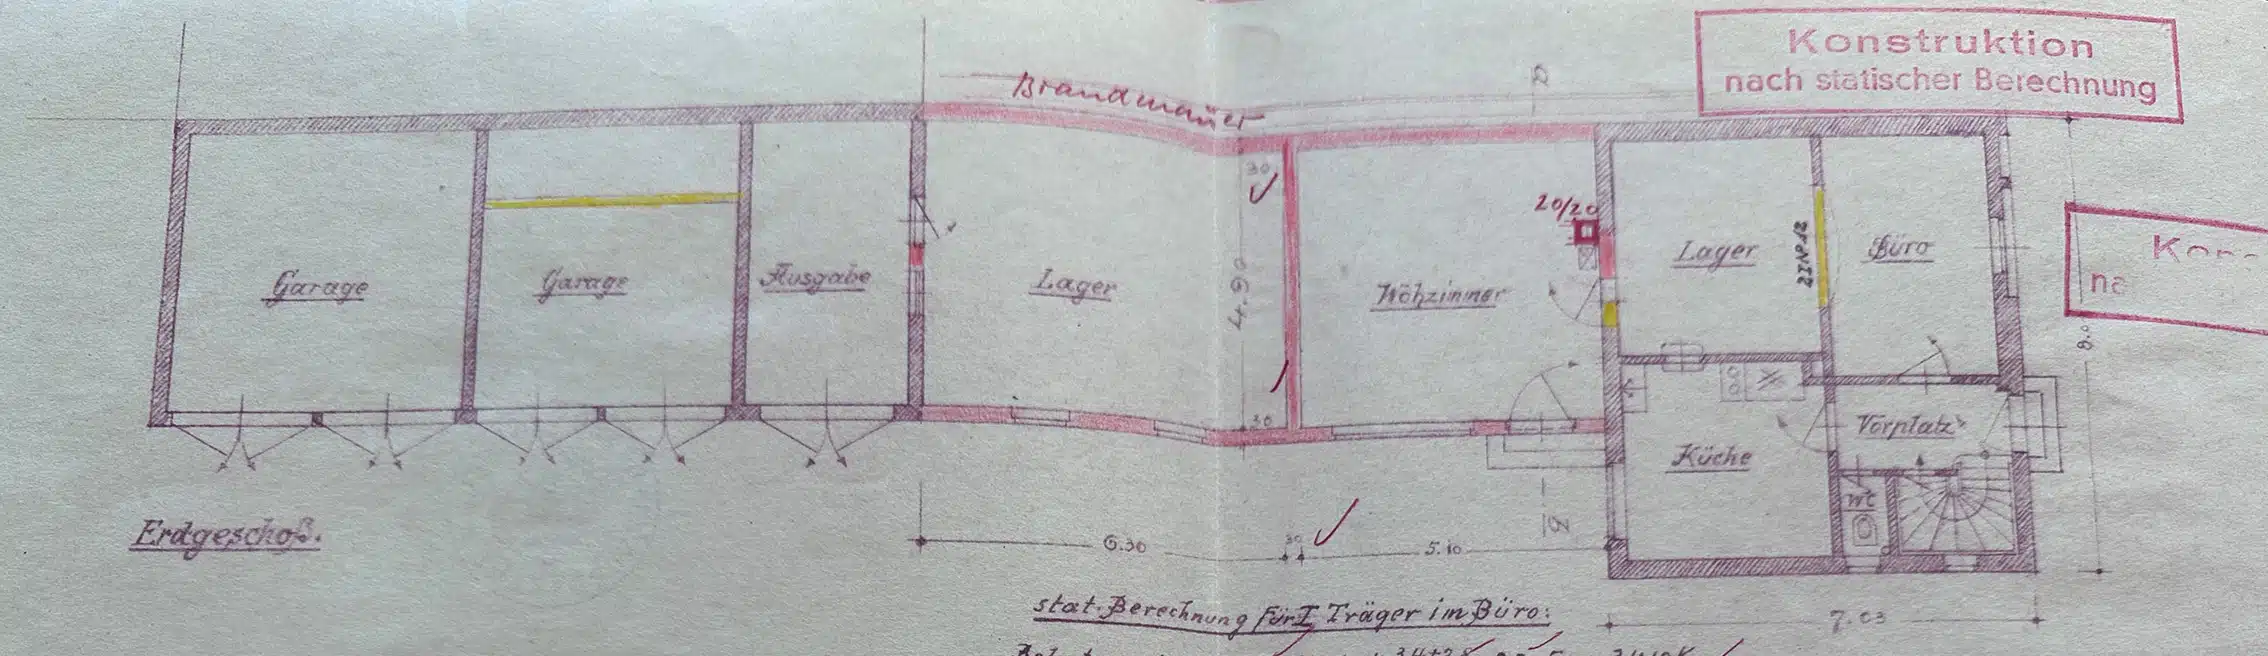 Konstruktion
nach statischer Berechnung
Brandmauer
Kon
na
30
20/20
4.90
Garage
Garage
Ausgabe
Lager
Wohzimmer
Lager
2INP12
Büro
30
Küche
Vorplatz
WC
Erdgeschoß.
6.30
30
5.10
stat. Berechnung für I Träger im Büro:
7.03